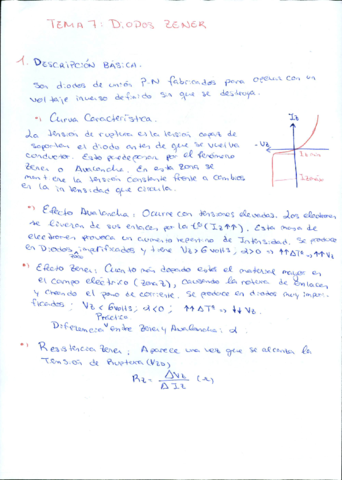 TEMA 7: DIODOS ZENER
1. DESCRIPCIÓN BÁSICA.
Son diodos de unión P-N fabricados para operar con un
voltaje inverso definido sin que se destruya.
*) Curva Característica.
La tensión de ruptura es la tensión capaz de
soportar el diodo antes de que se vuelva
conductor. Esta por el fenómeno
Zener o Avalancha. En esta zona se
mantiene la tensión constante frente a cambios
en la intensidad que circula.
Iz
-Vz
Iz min
Iz máx
*) Efecto Avalancha: Ocurre con tensiones elevadas. Los electrones
se liberan de sus enlaces por la tº (Iz↑↑). Esta masa de
electrones provoca un aumento repentino de Intensidad. Se produce
en Diodos impurificados y tiene Vz>6 volts; α>0 → ↑↑ΔTº → ↑↑Vz
*) Efecto Zener: Cuanto más dopado esté el material mayor es
el campo eléctrico (zona Z), causando la rotura de enlaces
y creando el paso de corriente. Se produce en diodos muy impuri-
ficados: Vz < 6 volts; α<0; ↑↑ΔTº → ↓↓Vz.
Práctica
Diferencia entre Zener y Avalancha: α.
*) Resistencia Zener: Aparece una vez que se alcanza la
Tensión de Ruptura (Vzo)
Rz = ΔVz / ΔIz (Ω)